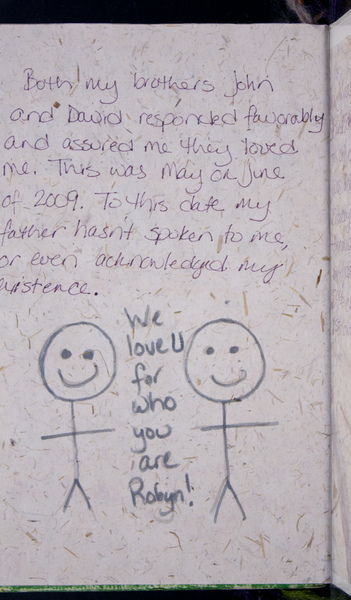 Both my brothers John
and David responded favorably
and assured me they loved
me. This was May or June
of 2009. To this date my
father hasn't spoken to me,
or even acknowledged my
existence.
We
love U
for
who
you
are
Robyn!